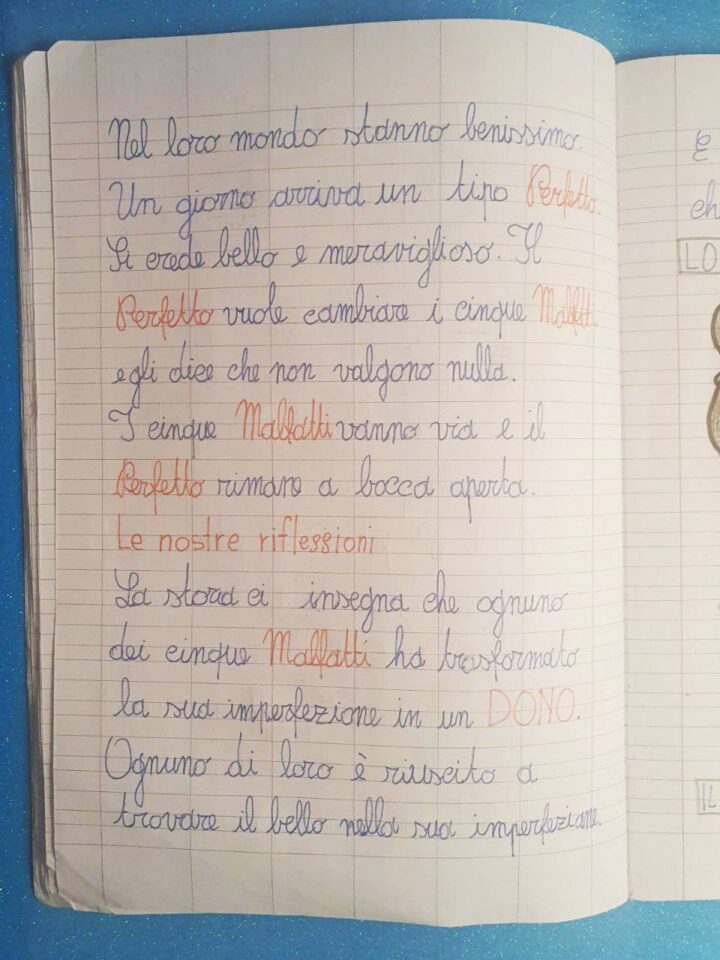 Nel loro mondo stanno benissimo.
Un giorno arriva un tipo Perfetto.
Si crede bello e meraviglioso. Il
Perfetto vuole cambiare i cinque Malfatti
egli dice che non valgono nulla.
I cinque Malfatti vanno via e il
Perfetto rimane a bocca aperta.
Le nostre riflessioni
La storia ci insegna che ognuno
dei cinque Malfatti ha trasformato
la sua imperfezione in un DONO.
Ognuno di loro è riuscito a
trovare il bello nella sua imperfezione.
E
ch
LO
IL